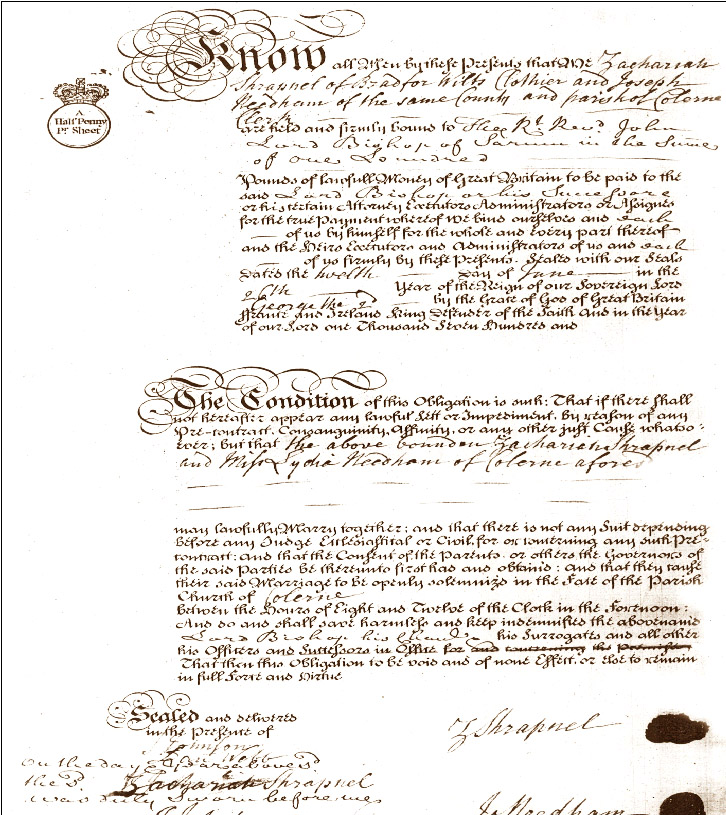 Know all Men by these Presents that We Zachariah
Shrapnel of Bradfor Wilts Clothier and Joseph
Needham of the same County and parish of Colerne
Clerk
A
Half Penny
Pr Sheet
are held and firmly bound to the Rt Revd John
Lord Bishop of Sarum in the Sume
of one Hundred
Pounds of lawfull Money of Great Britain to be paid to the
said Lord Bishop or his Successors
or his certain Attorney Executors Administrators or Assignes
for the true Payment whereof We bind ourselves and each
of us by himself for the whole and every part thereof
and the Heirs Executors and Administrators of us and each
of us firmly by these Presents. Sealed with our Seals
Dated the twelth Day of June in the
26th Year of the Reign of our Sovereign Lord
George the 2d by the Grace of God of Great Britain
France and Ireland King Defender of the Faith And in the Year
of our Lord one Thousand Seven Hundred and
The Condition of this Obligation is such: That if there shall
not hereafter appear any lawful Lett or Impediment, by reason of any
Pre-contract, Consanguinity, Affinity, or any other just Cause whatso-
ever; but that the above bounden Zachariah Shrapnel
and Miss Lydia Needham of Colerne afores
may lawfully Marry together; and that there is not any Suit depending
before any Judge Ecclesiastical or Civil, for or concerning any such Pre-
contract: and that the Consent of the Parents, or others the Governors of
the said Parties be thereunto first had and obtained: And that they cause
their said Marriage to be openly solemnizd in the Face of the Parish
Church of Colerne
between the Hours of Eight and Twelve of the Clock in the Forenoon:
And do and shall save harmless and keep indemnified the abovenamd
Lord Bishop his his Surrogates and all other
his Officers and Successors in Office for and concerning the Premisses
That then this Obligation to be void and of none Effect, or else to remain
in full Force and Virtue
Sealed and delivered
in the Presence of
Z Shrapnel
Johnson
On the day & above sd
the sd Zachariah Shrapnel
was duly Sworn before me
Js Needham